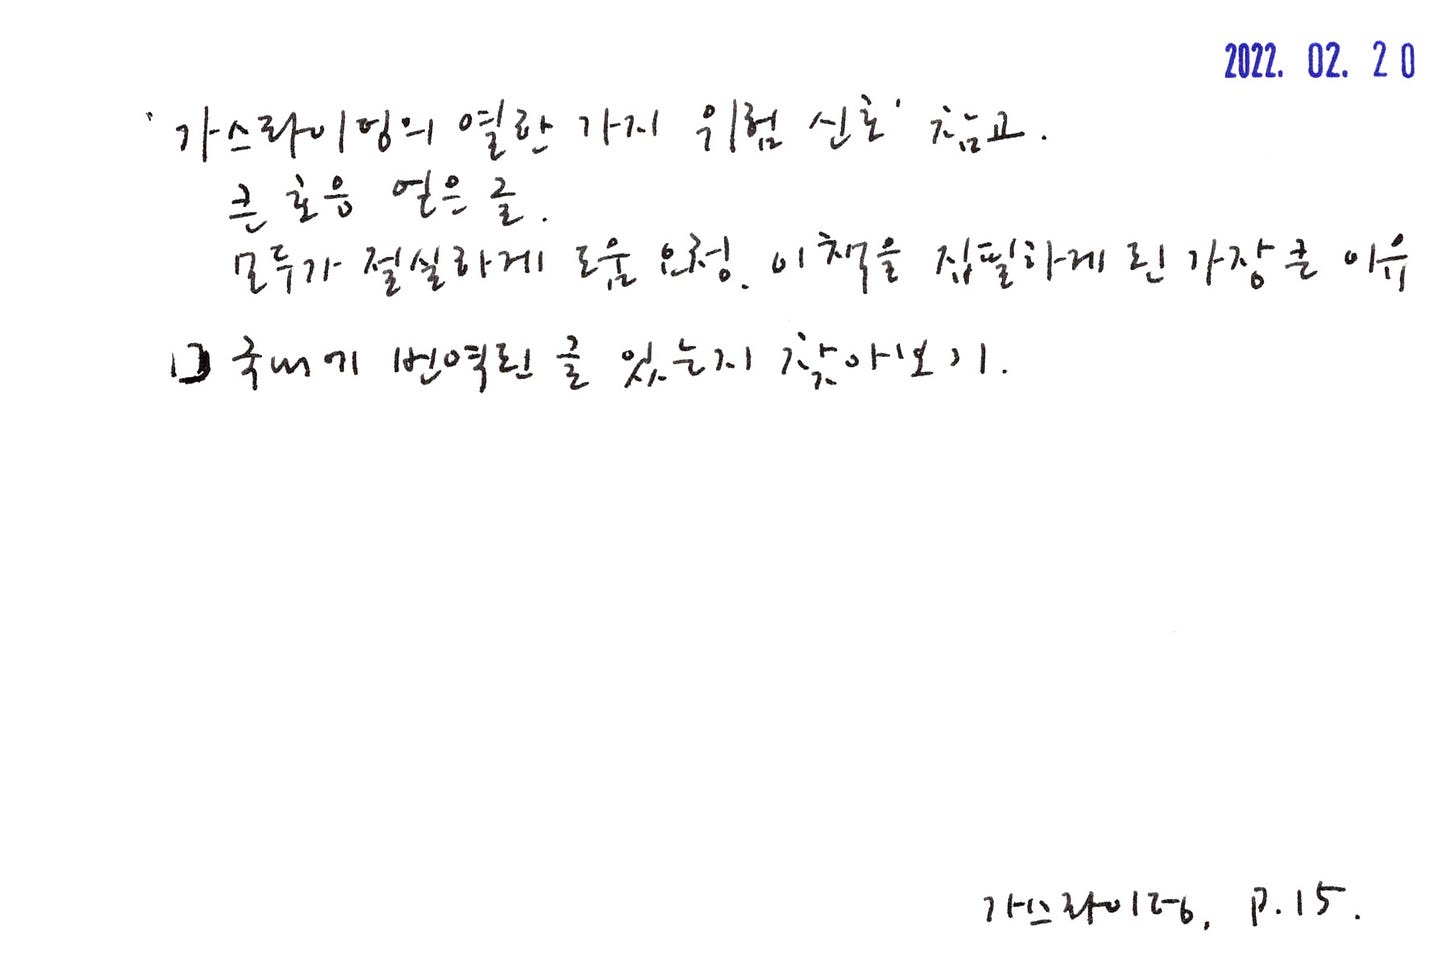 2022. 02. 20
'가스라이팅의 열한 가지 위험 신호' 참고.
큰 호응 얻은 글.
모두가 절실하게 도움 요청. 이 책을 집필하게 된 가장 큰 이유
국내에 번역된 글 있는지 찾아보기.
가스라이팅, p.15.